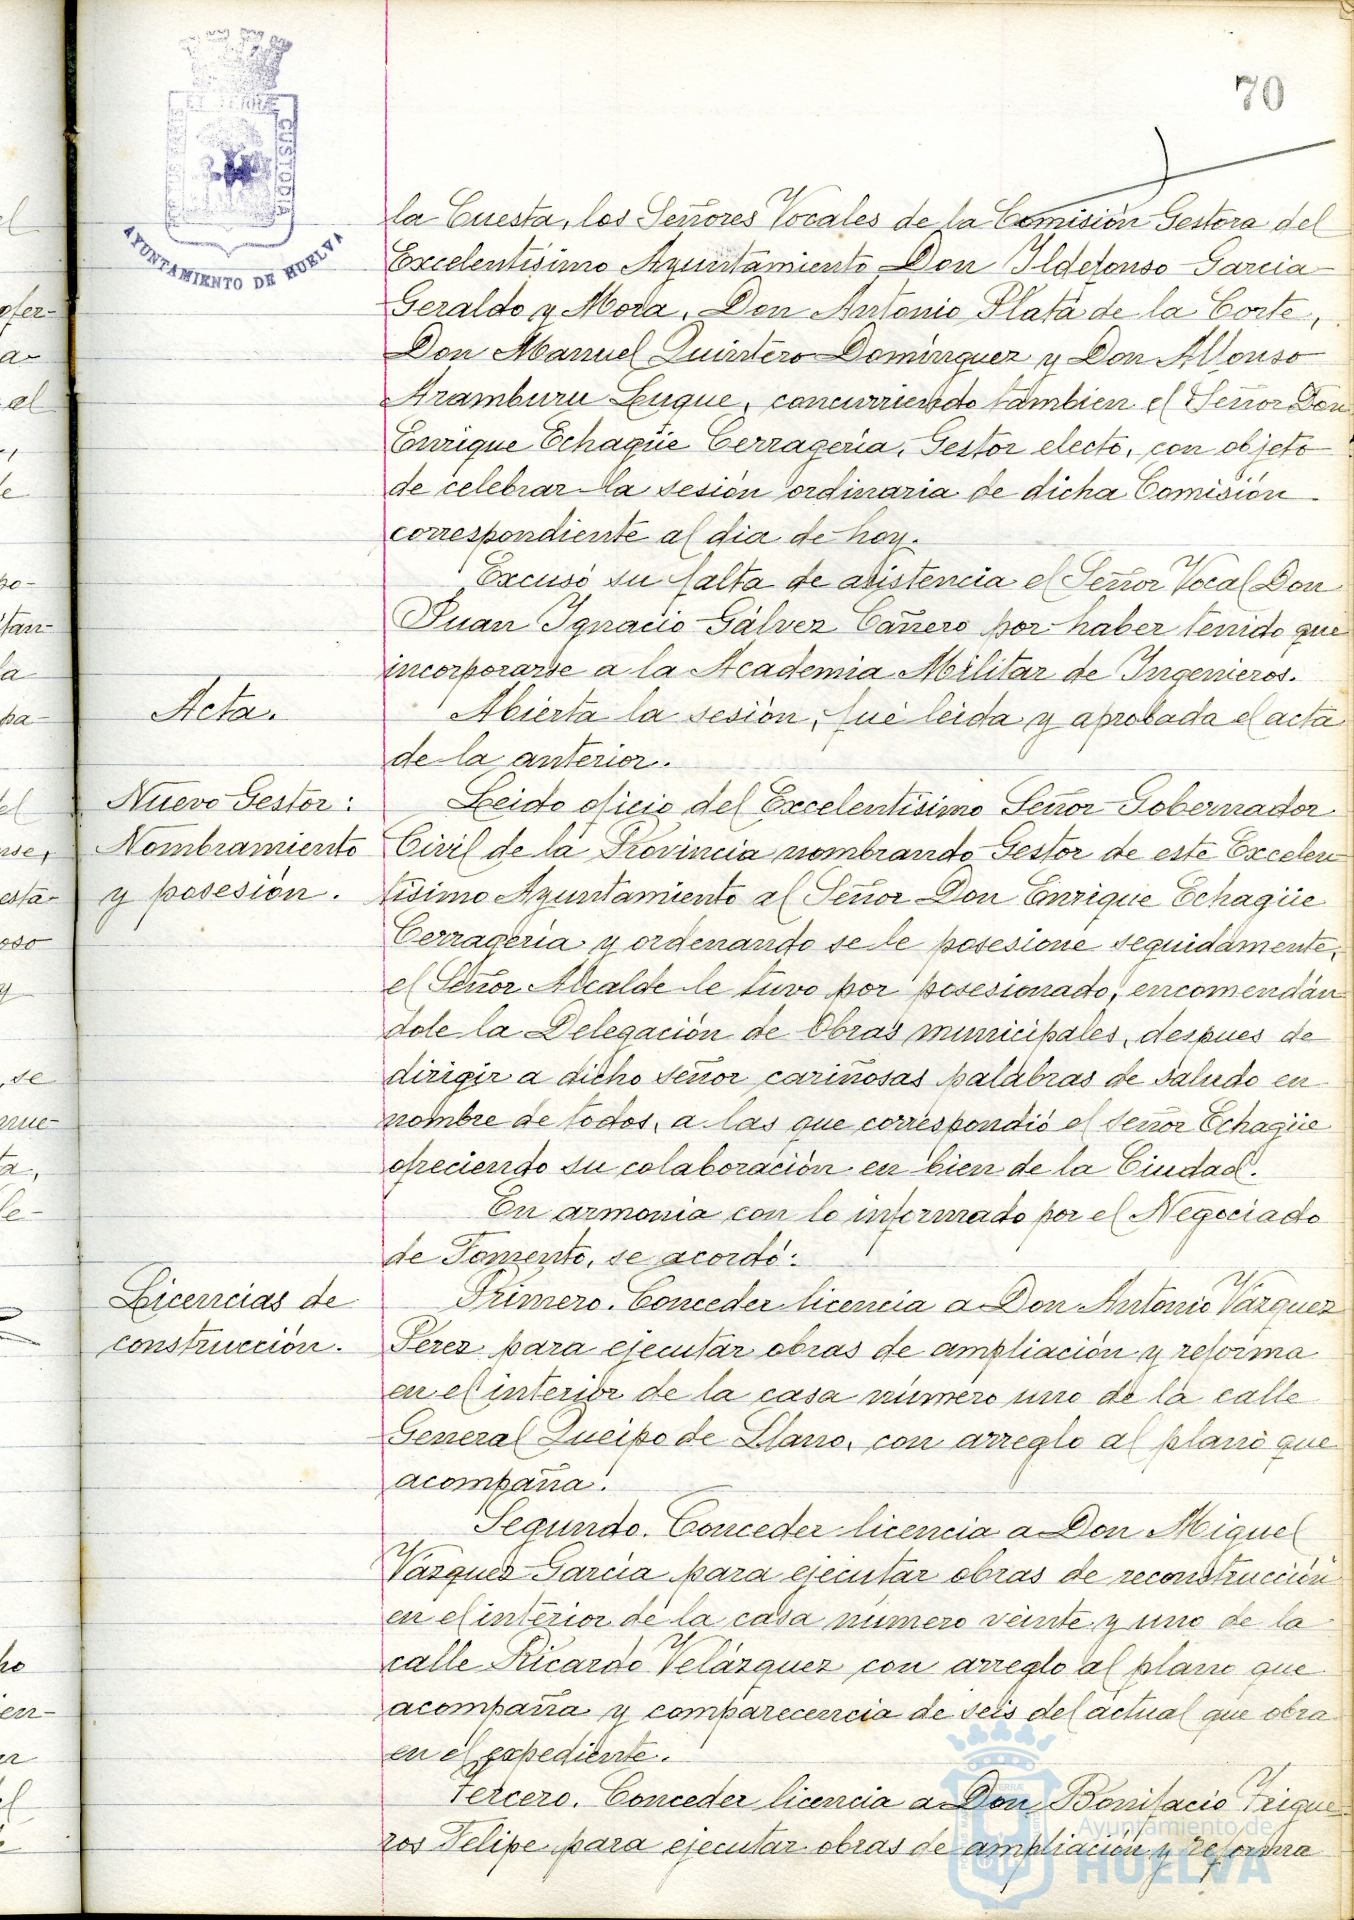 70
ET TERRÆ
CUSTODIA
AYUNTAMIENTO DE HUELVA
la Cuesta, los Señores Vocales de la Comisión Gestora del
Excelentísimo Ayuntamiento Don Ildefonso Garcia
Geraldo y Mora, Don Antonio Plata de la Corte,
Don Manuel Quintero Domínguez y Don Alfonso
Aramburu Luque, concurriendo tambien el Señor Don
Enrique Echagüe Cerragería, Gestor electo, con objeto
de celebrar la sesión ordinaria de dicha Comisión
correspondiente al dia de hoy.
Excusó su falta de asistencia el Señor Vocal Don
Juan Ignacio Gálvez Cañero por haber tenido que
incorporarse a la Academia Militar de Ingenieros.
Acta.
Abierta la sesión, fué leida y aprobada el acta
de la anterior.
Nuevo Gestor:
Nombramiento
y posesión.
Leido oficio del Excelentísimo Señor Gobernador
Civil de la Provincia nombrando Gestor de este Excelen-
tísimo Ayuntamiento al Señor Don Enrique Echagüe
Cerragería y ordenando se le posesione seguidamente,
el Señor Alcalde le tuvo por posesionado, encomendán-
dole la Delegación de Obras municipales, despues de
dirigir a dicho señor cariñosas palabras de saludo en
nombre de todos, a las que correspondió el señor Echagüe
ofreciendo su colaboración en bien de la Ciudad.
En armonia con lo informado por el Negociado
de Fomento, se acordó:
Licencias de
construcción.
Primero. Conceder licencia a Don Antonio Vázquez
Pérez para ejecutar obras de ampliación y reforma
en el interior de la casa número uno de la calle
General Queipo de Llano, con arreglo al plano que
acompaña.
Segundo. Conceder licencia a Don Miguel
Vázquez García para ejecutar obras de reconstrucción
en el interior de la casa número veinte y uno de la
calle Ricardo Velázquez con arreglo al plano que
acompaña y comparecencia de seis del actual que obra
en el expediente.
Tercero. Conceder licencia a Don Bonifacio Trigue-
ros Felipe para ejecutar obras de ampliación y reforma
Ayuntamiento de
HUELVA